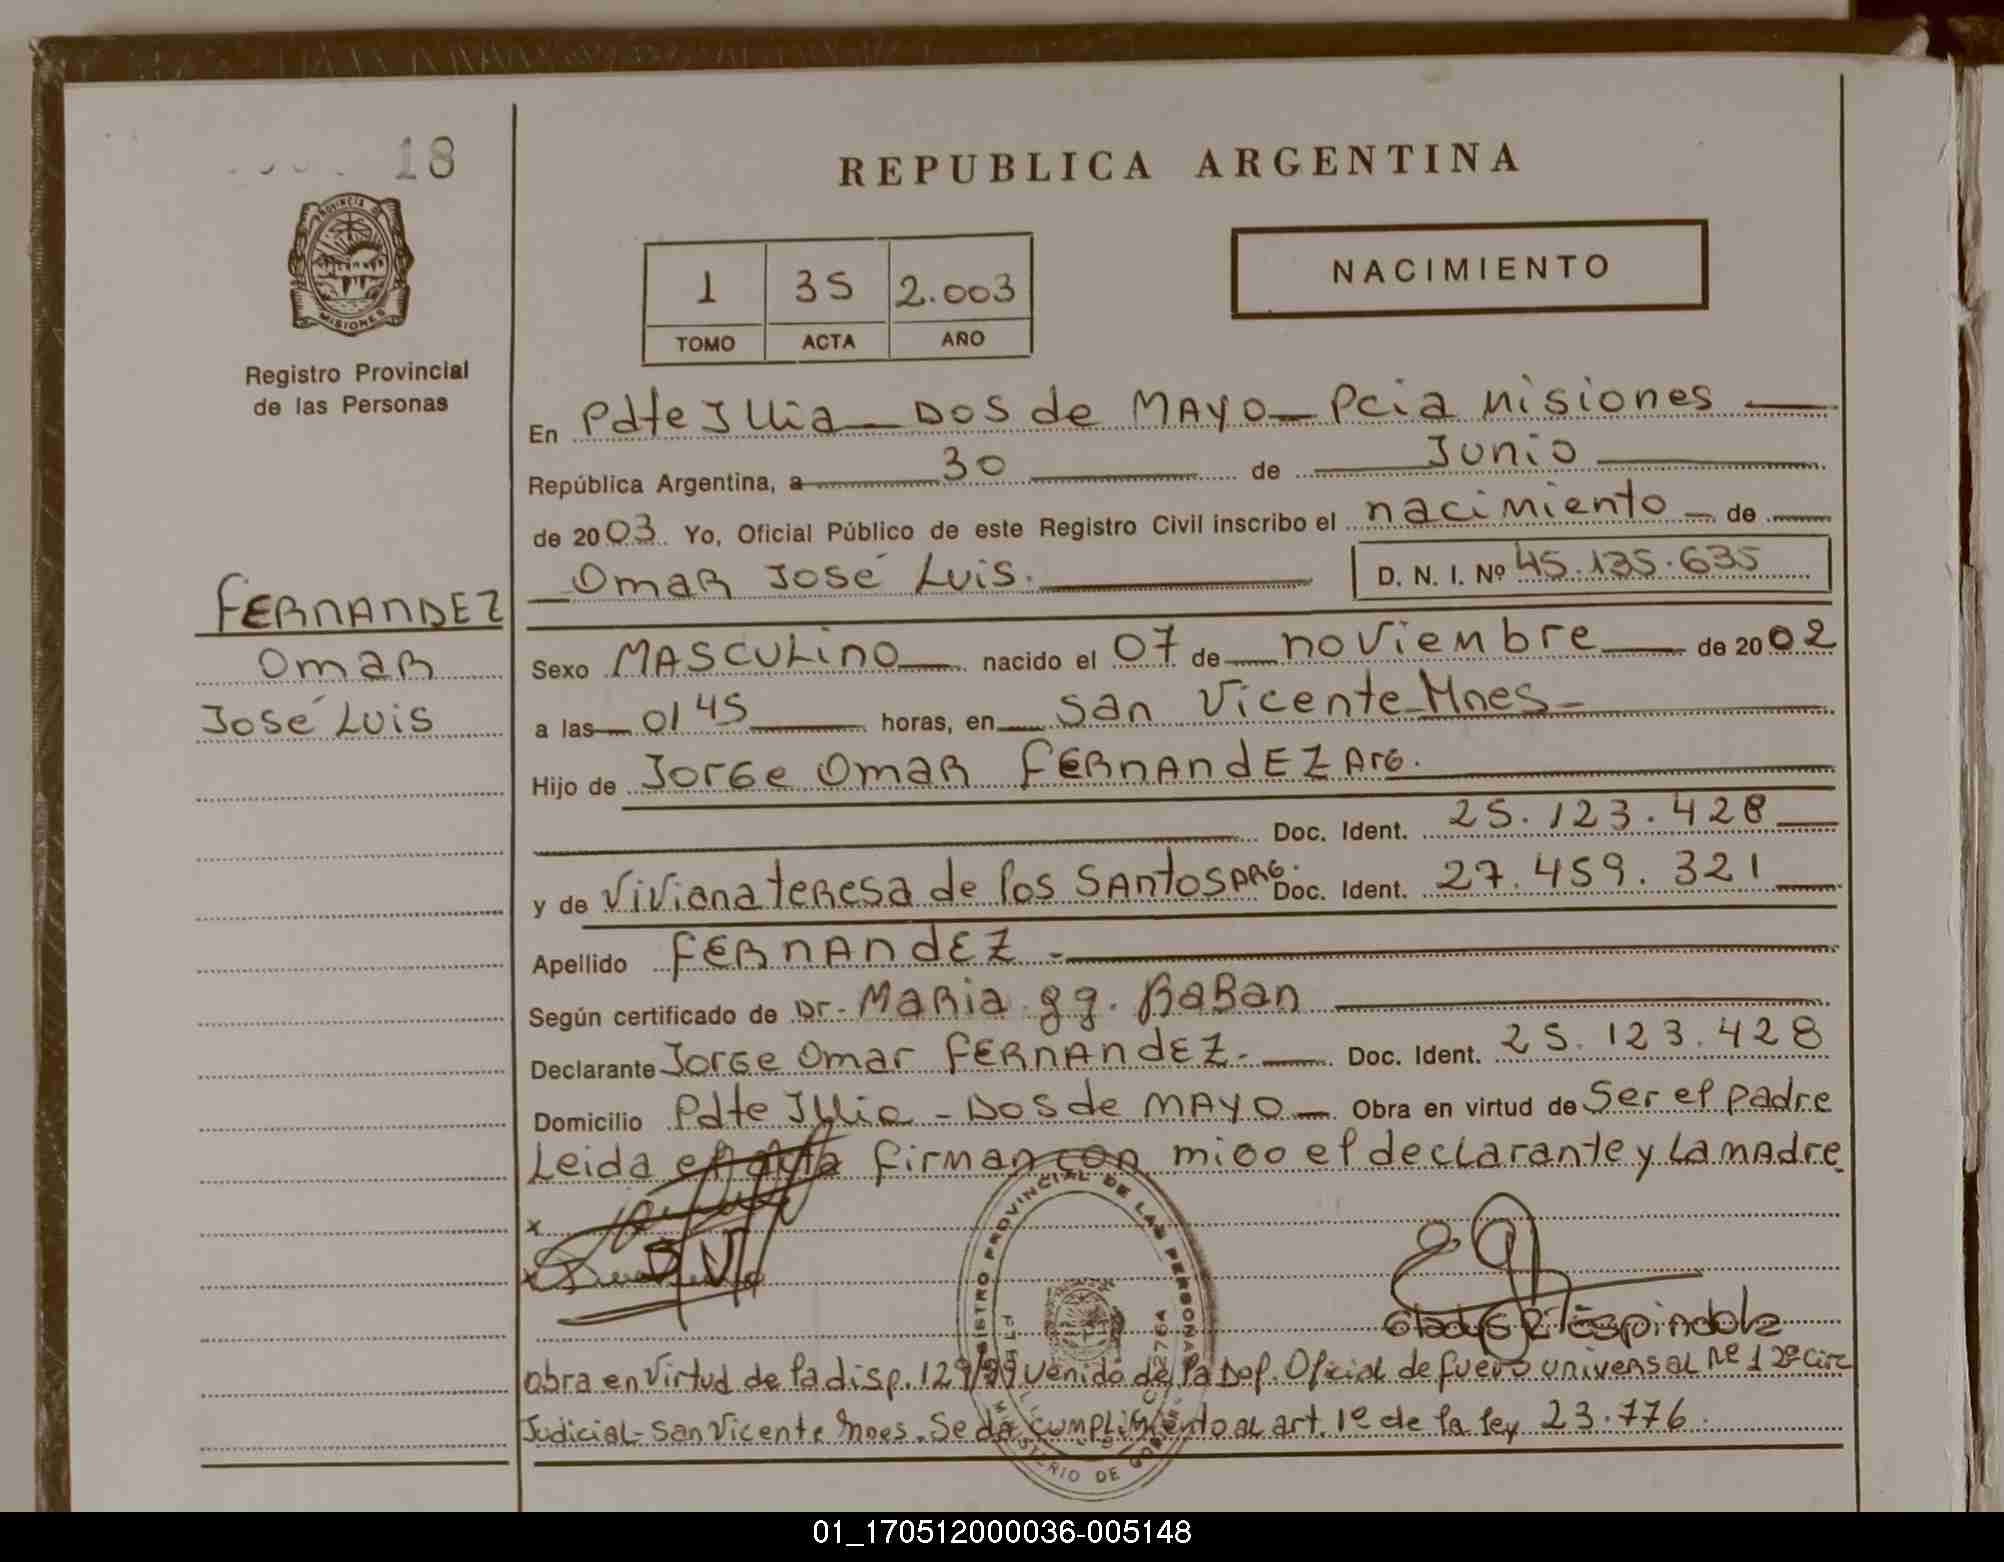 18
PROVINCIA DE
MISIONES
Registro Provincial
de las Personas
FERNANDEZ
Omar
José Luis
REPUBLICA ARGENTINA
1 35 2.003
TOMO ACTA AÑO
NACIMIENTO
En Pdte Illia - Dos de MAYO - Pcia Misiones
República Argentina, a 30 de Junio
de 2003 Yo, Oficial Público de este Registro Civil inscribo el nacimiento de
Omar José Luis. D. N. I. Nº 45.135.635
Sexo MASCULINO nacido el 07 de noviembre de 2002
a las 01 45 horas, en San Vicente - Mnes -
Hijo de Jorge Omar FERNANDEZ Arg.
Doc. Ident. 25.123.428
y de Viviana teresa de los SAntos ARG. Doc. Ident. 27.459.321
Apellido FERNANDEZ -
Según certificado de Dr- Maria gg. BaRan
Declarante Jorge Omar FERNANDEZ - Doc. Ident. 25.123.428
Domicilio Pdte Illia - Dos de MAYO Obra en virtud de Ser el padre
Leida el acta firman con migo el declarante y la madre
x
x
REGISTRO PROVINCIAL DE LAS PERSONAS
Gladys R Espindola
obra en virtud de la disp. 129/99 venido de la Def. Oficial de fuero universal Nº 1 2º Circ
Judicial - San Vicente Mnes. Se da cumplimiento al art. 1º de la ley 23.776.
01_170512000036-005148